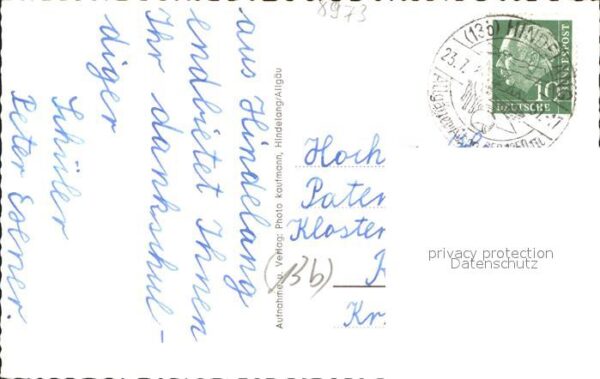 8973
aus Hindelang
endbietet Ihnen
Ihr dankschul-
diger
Schüler
Peter Esener.
Aufnahme u. Verlag: Photo kaufmann, Hindelang/Allgäu
(13b) HINDEL
23.7.
10
DEUTSCHE
BUNDESPOST
Hoch
Pater
Kloster
(13b)
Kr.
privacy protection
Datenschutz